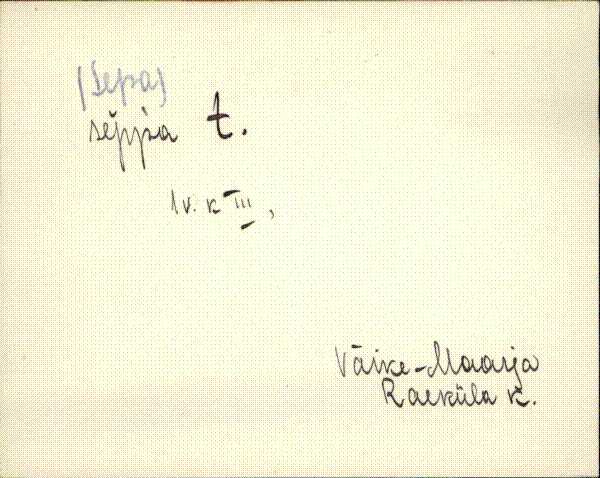 (Sepa)
sĕp̀p̀a t.
lv. k III,
Väike-Maarja
Raeküla k.